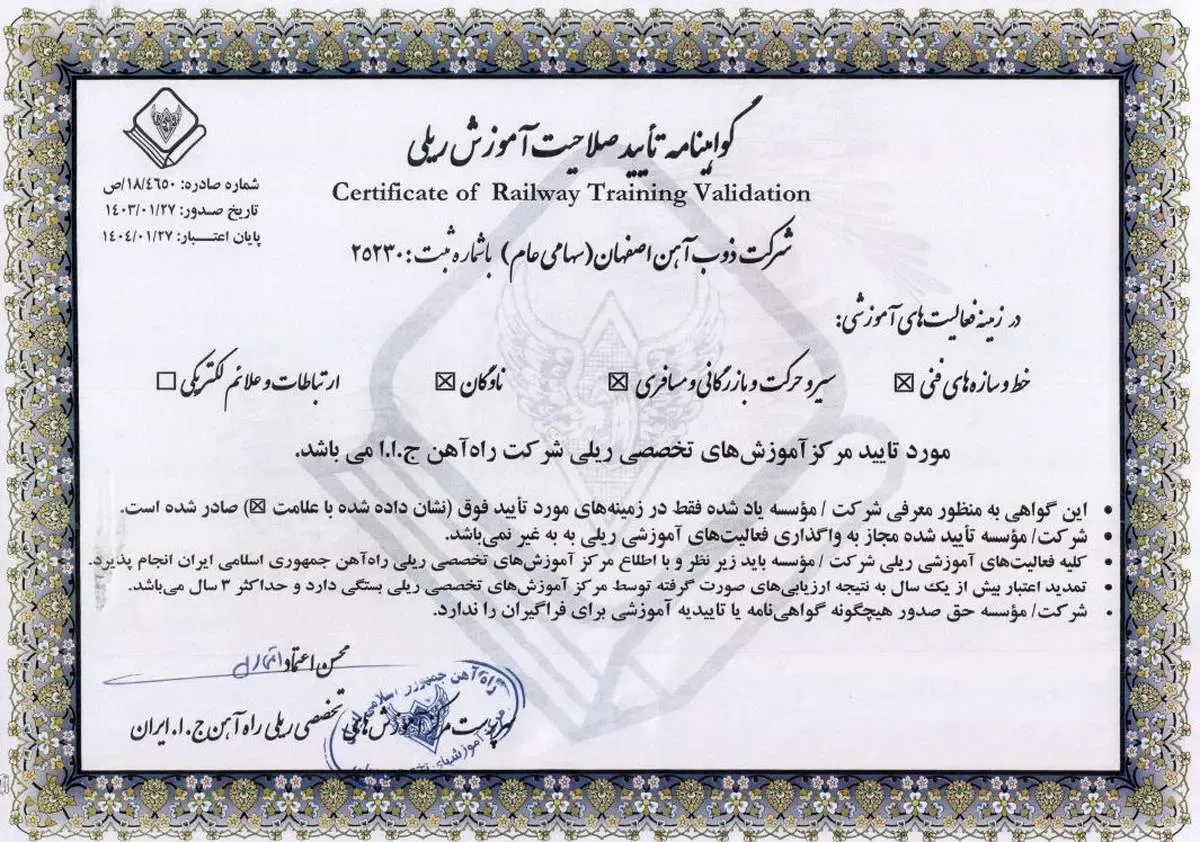 گواهینامه تأیید صلاحیت آموزش ریلی
Certificate of Railway Training Validation
شماره صادره: ۱۸/٤٦٥٠/ص
تاریخ صدور: ۱٤۰۳/۰۱/۲۷
پایان اعتبـــار: ۱٤۰٤/۰۱/۲۷
شرکت ذوب آهن اصفهان (سهامی عام) باشماره ثبت: ۲۵۲۳۰
در زمینه فعالیت‌های آموزشی:
خط و سازه‌های فنی ☒ سیر و حرکت و بازرگانی و مسافری ☒ ناوگان ☒ ارتباطات و علائم الکتریکی ☐
مورد تایید مرکز آموزش‌های تخصصی ریلی شرکت راه‌آهن ج.ا.ا می باشد.
• این گواهی به منظور معرفی شرکت / مؤسسه یاد شده فقط در زمینه‌های مورد تأیید فوق (نشان داده شده با علامت ☒) صادر شده است.
• شرکت/ مؤسسه تأیید شده مجاز به واگذاری فعالیت‌های آموزشی ریلی به به غیر نمی‌باشد.
• کلیه فعالیت‌های آموزشی ریلی شرکت / مؤسسه باید زیر نظر و با اطلاع مرکز آموزش‌های تخصصی ریلی راه‌آهن جمهوری اسلامی ایران انجام پذیرد.
• تمدید اعتبار بیش از یک سال به نتیجه ارزیابی‌های صورت گرفته توسط مرکز آموزش‌های تخصصی ریلی بستگی دارد و حداکثر ۳ سال می‌باشد.
• شرکت/ مؤسسه حق صدور هیچگونه گواهی‌نامه یا تاییدیه آموزشی برای فراگیران را ندارد.
محسن اعتماد
سرپرست مرکز آموزش‌های تخصصی ریلی راه آهن ج.ا.ایران
راه آهن جمهوری اسلامی
آموزشهای